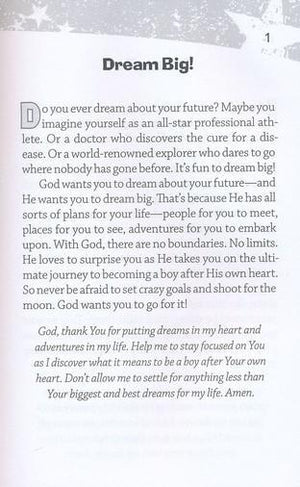 1
Dream Big!
Do you ever dream about your future? Maybe you
imagine yourself as an all-star professional ath-
lete. Or a doctor who discovers the cure for a dis-
ease. Or a world-renowned explorer who dares to go
where nobody has gone before. It's fun to dream big!
God wants you to dream about your future—and
He wants you to dream big. That's because He has all
sorts of plans for your life—people for you to meet,
places for you to see, adventures for you to embark
upon. With God, there are no boundaries. No limits.
He loves to surprise you as He takes you on the ulti-
mate journey to becoming a boy after His own heart.
So never be afraid to set crazy goals and shoot for the
moon. God wants you to go for it!
God, thank You for putting dreams in my heart and
adventures in my life. Help me to stay focused on You
as I discover what it means to be a boy after Your own
heart. Don't allow me to settle for anything less than
Your biggest and best dreams for my life. Amen.